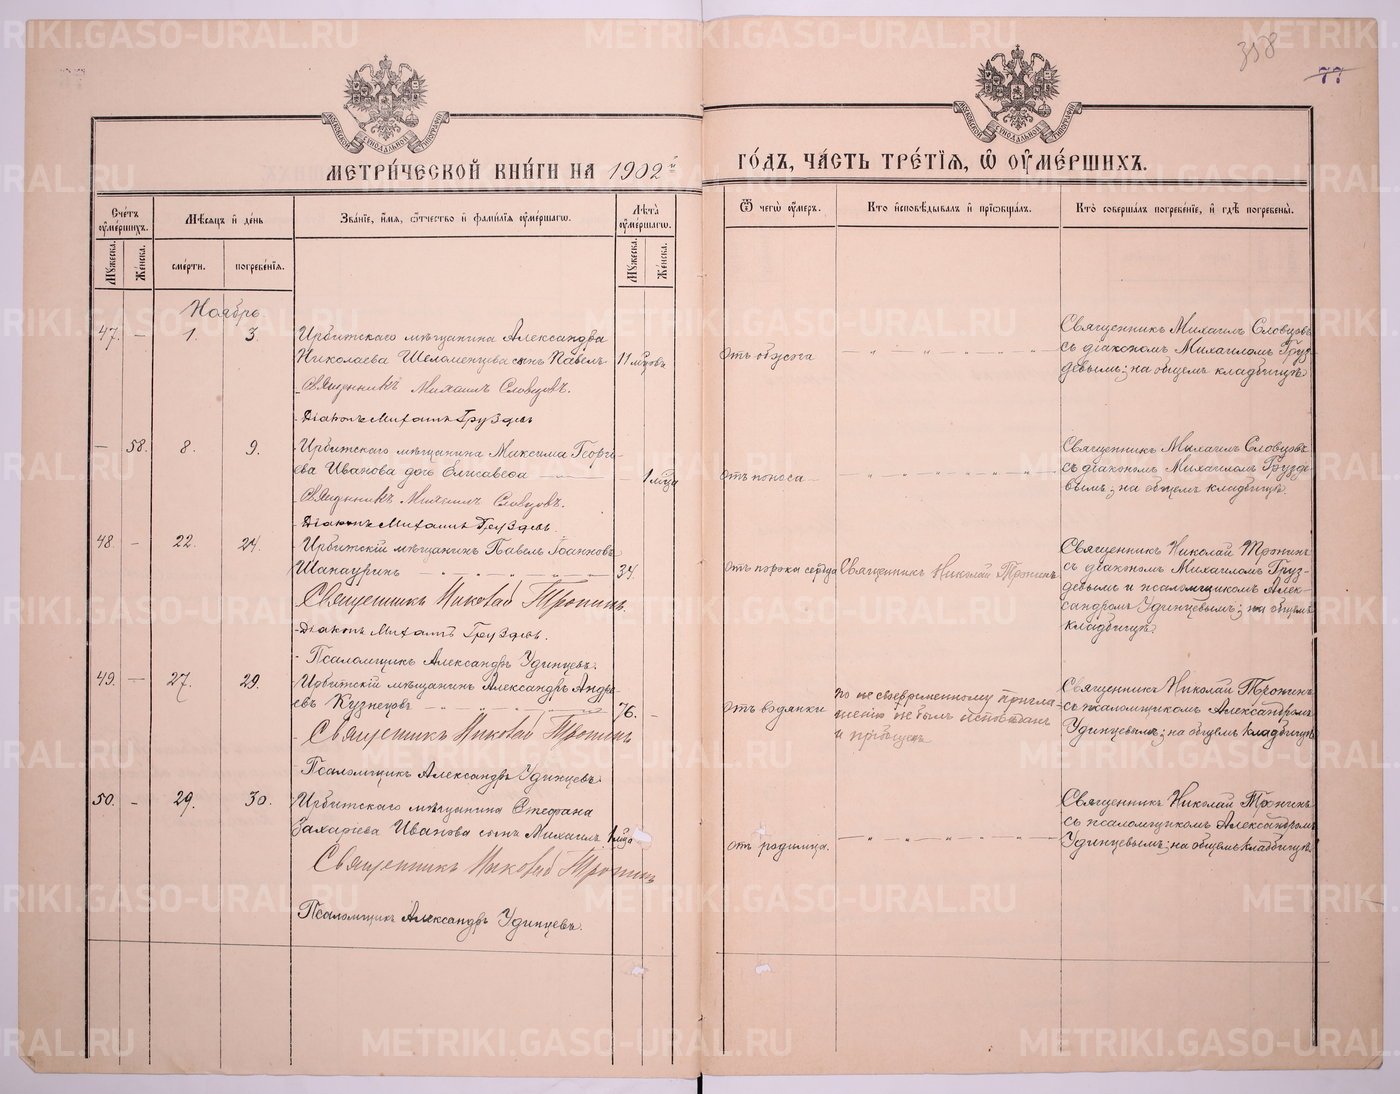 358
77
МЕТРИ́ЧЕСКОЙ КНИ́ГИ НА 1902й ГО́ДЪ, ЧА́СТЬ ТРЕ́ТІЯ, Ѽ ОУМЕ́РШИХЪ.
Сче́тъ оуме́ршихъ.
Мѣ́сяцъ и҆ де́нь
Зва́ніе, и҆́мя, ѻ҆́тчество и҆ фами́лія оуме́ршагѡ.
Лѣ́та оуме́ршагѡ.
Ѿ чегѡ̀ оу́меръ.
Кто̀ и҆сповѣ́дывалъ и҆ прїѡбща́лъ.
Кто̀ соверша́лъ погребе́ніе, и҆ гдѣ̀ погребены̀.
Му́жеска.
Же́нска.
сме́рти.
погребе́нія.
Му́жеска.
Же́нска.
Ноябрь
47. — 1. 3. Ирбитскаго мѣщанина Александра
Николаева Шеломенцева сынъ Павелъ 11 мцовъ
Священникъ Михаилъ Словцовъ.
Діаконъ Михаилъ Груздевъ
отъ обжога
Священникъ Михаилъ Словцовъ
съ діакономъ Михаиломъ Груз-
девымъ; на общемъ кладбищѣ
— 58. 8. 9. Ирбитскаго мѣщанина Максима Георгі-
ева Иванова дочь Елисавета 1 мца
Священникъ Михаилъ Словцовъ.
Діаконъ Михаилъ Груздевъ.
отъ поноса
Священникъ Михаилъ Словцовъ
съ діакономъ Михаиломъ Груздe-
вымъ; на общемъ кладбищѣ.
48. — 22. 24. Ирбитскій мѣщанинъ Павелъ Іоанновъ
Шапауринъ 34.
Священникъ Николай Тронинъ.
Діаконъ Михаилъ Груздевъ.
Псаломщикъ Александръ Удинцевъ.
отъ порока сердца
Священникъ Николай Тронинъ
Священникъ Николай Тронинъ
съ діакономъ Михаиломъ Груз-
девымъ и псаломщикомъ Алек-
сандромъ Удинцевымъ; на общемъ
кладбищѣ.
49. — 27. 29. Ирбитскій мѣщанинъ Александръ Андре-
евъ Кузнецовъ 76.
Священникъ Николай Тронинъ
Псаломщикъ Александръ Удинцевъ
отъ водянки
по не своевременному пригла-
шенію не былъ исповѣданъ
и пріобщенъ
Священникъ Николай Тронинъ
съ псаломщикомъ Александромъ
Удинцевымъ; на общемъ кладбищѣ
50. — 29. 30. Ирбитскаго мѣщанина Стефана
Захаріева Иванова сынъ Михаилъ 1 мца
Священникъ Николай Тронинъ
Псаломщикъ Александръ Удинцевъ.
отъ родимца.
Священникъ Николай Тронинъ
съ псаломщикомъ Александромъ
Удинцевымъ; на общемъ кладбищѣ.
METRIKI.GASO-URAL.RU